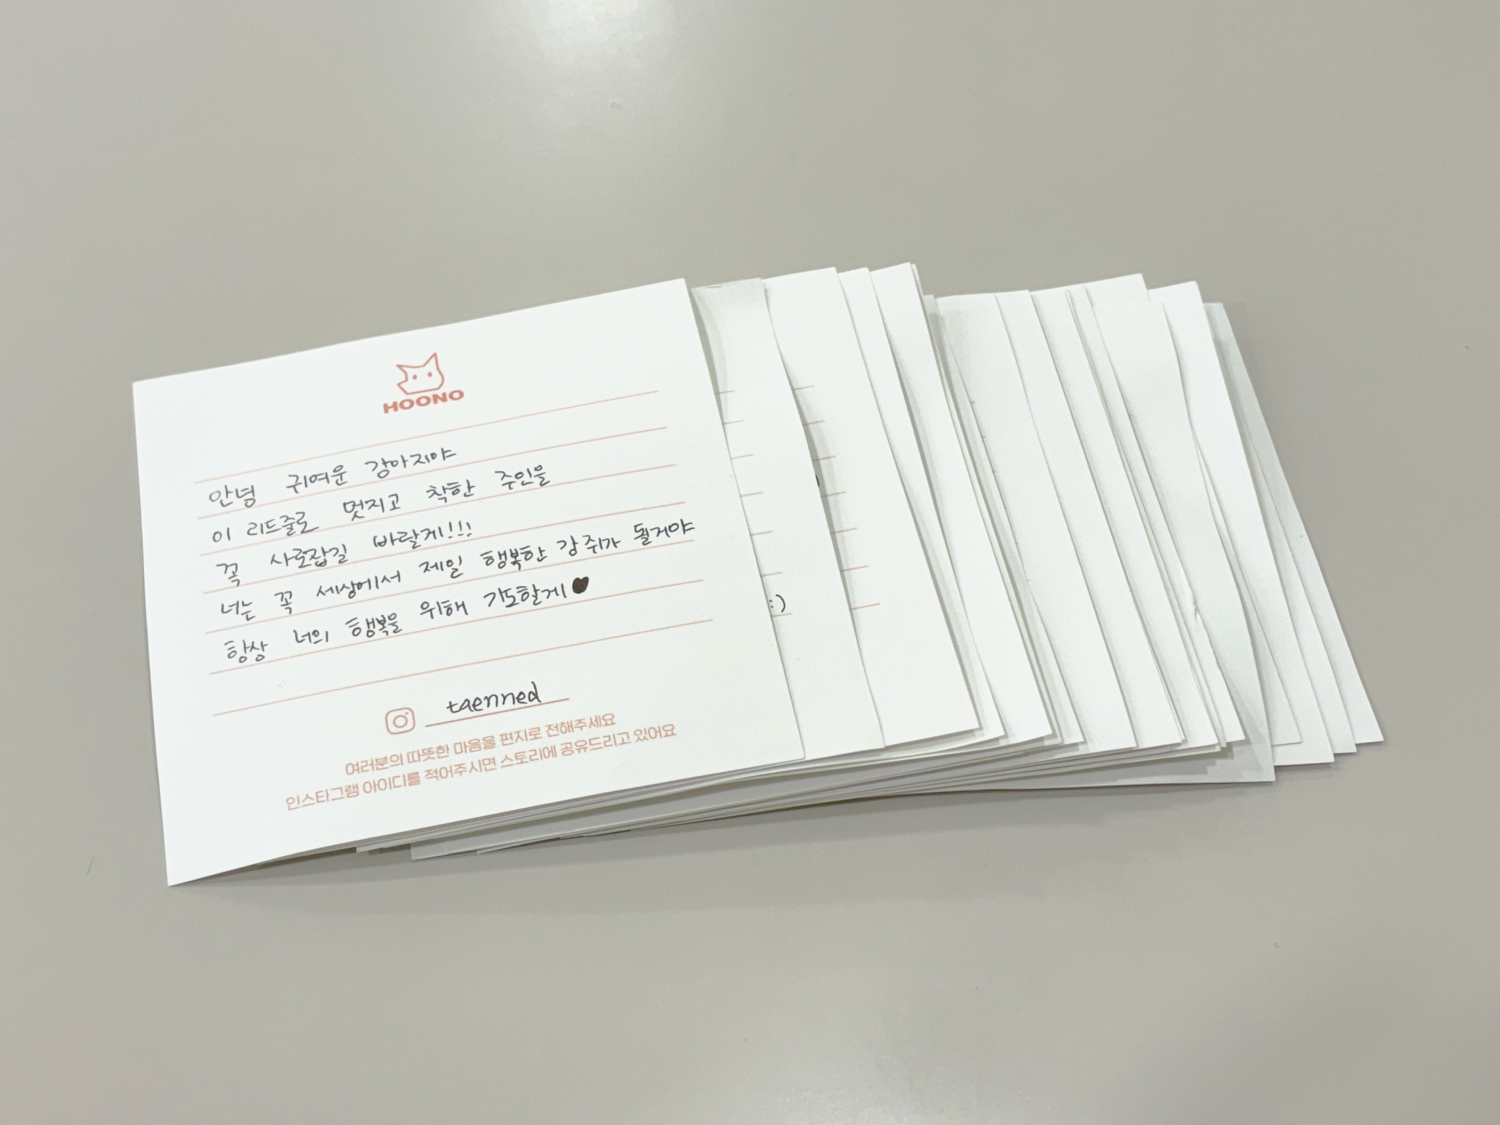 HOONO
안녕 귀여운 강아지야
이 리드줄로 멋지고 착한 주인을
꼭 사로잡길 바랄게!!!
너는 꼭 세상에서 제일 행복한 강쥐가 될거야
항상 너의 행복을 위해 기도할게♥
:)
taenned
여러분의 따뜻한 마음을 편지로 전해주세요
인스타그램 아이디를 적어주시면 스토리에 공유드리고 있어요